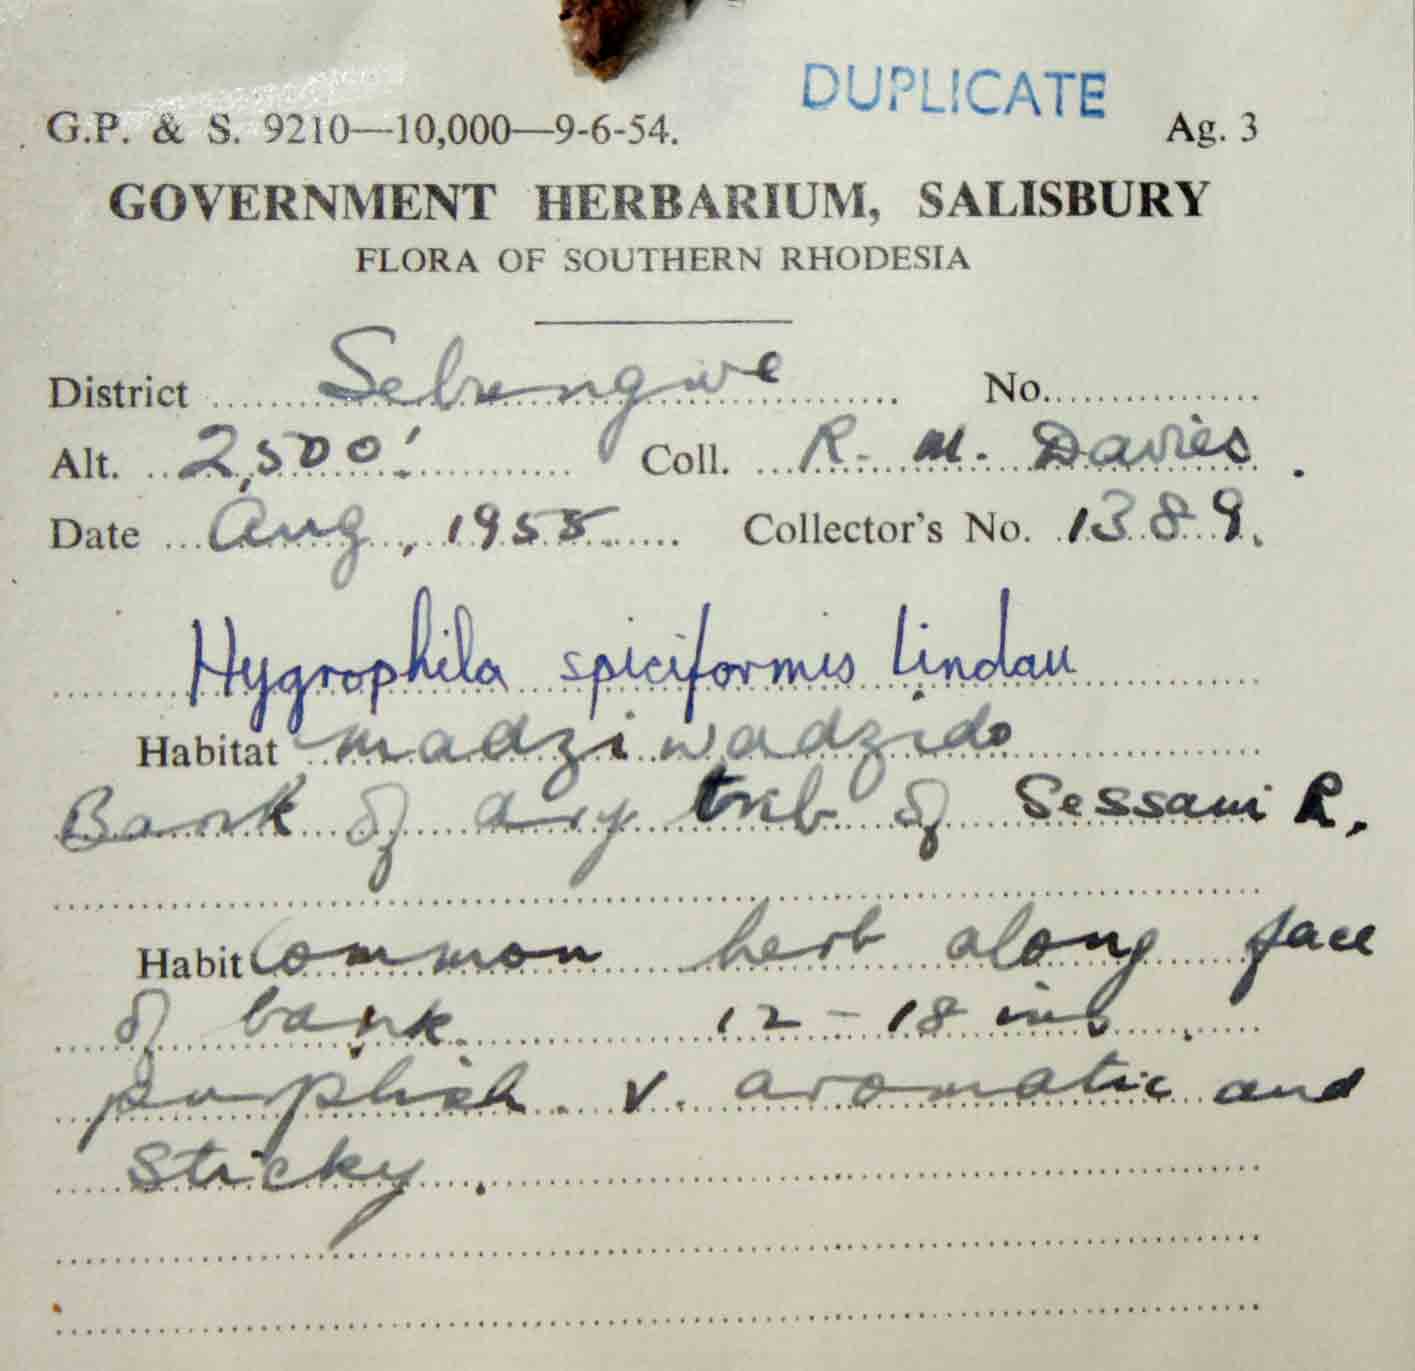 DUPLICATE
G.P. & S. 9210—10,000—9-6-54. Ag. 3
GOVERNMENT HERBARIUM, SALISBURY
FLORA OF SOUTHERN RHODESIA
District Sebungwe No.
Alt. 2,500' Coll. R. M. Davies.
Date Aug, 1955 Collector's No. 1389.
Hygrophila spiciformis Lindau
Habitat madziwadzido
Bank of dry trib of Sessami R,
Habit Common herb along face
of bank. 12 - 18 ins.
purplish. v. aromatic and
sticky.